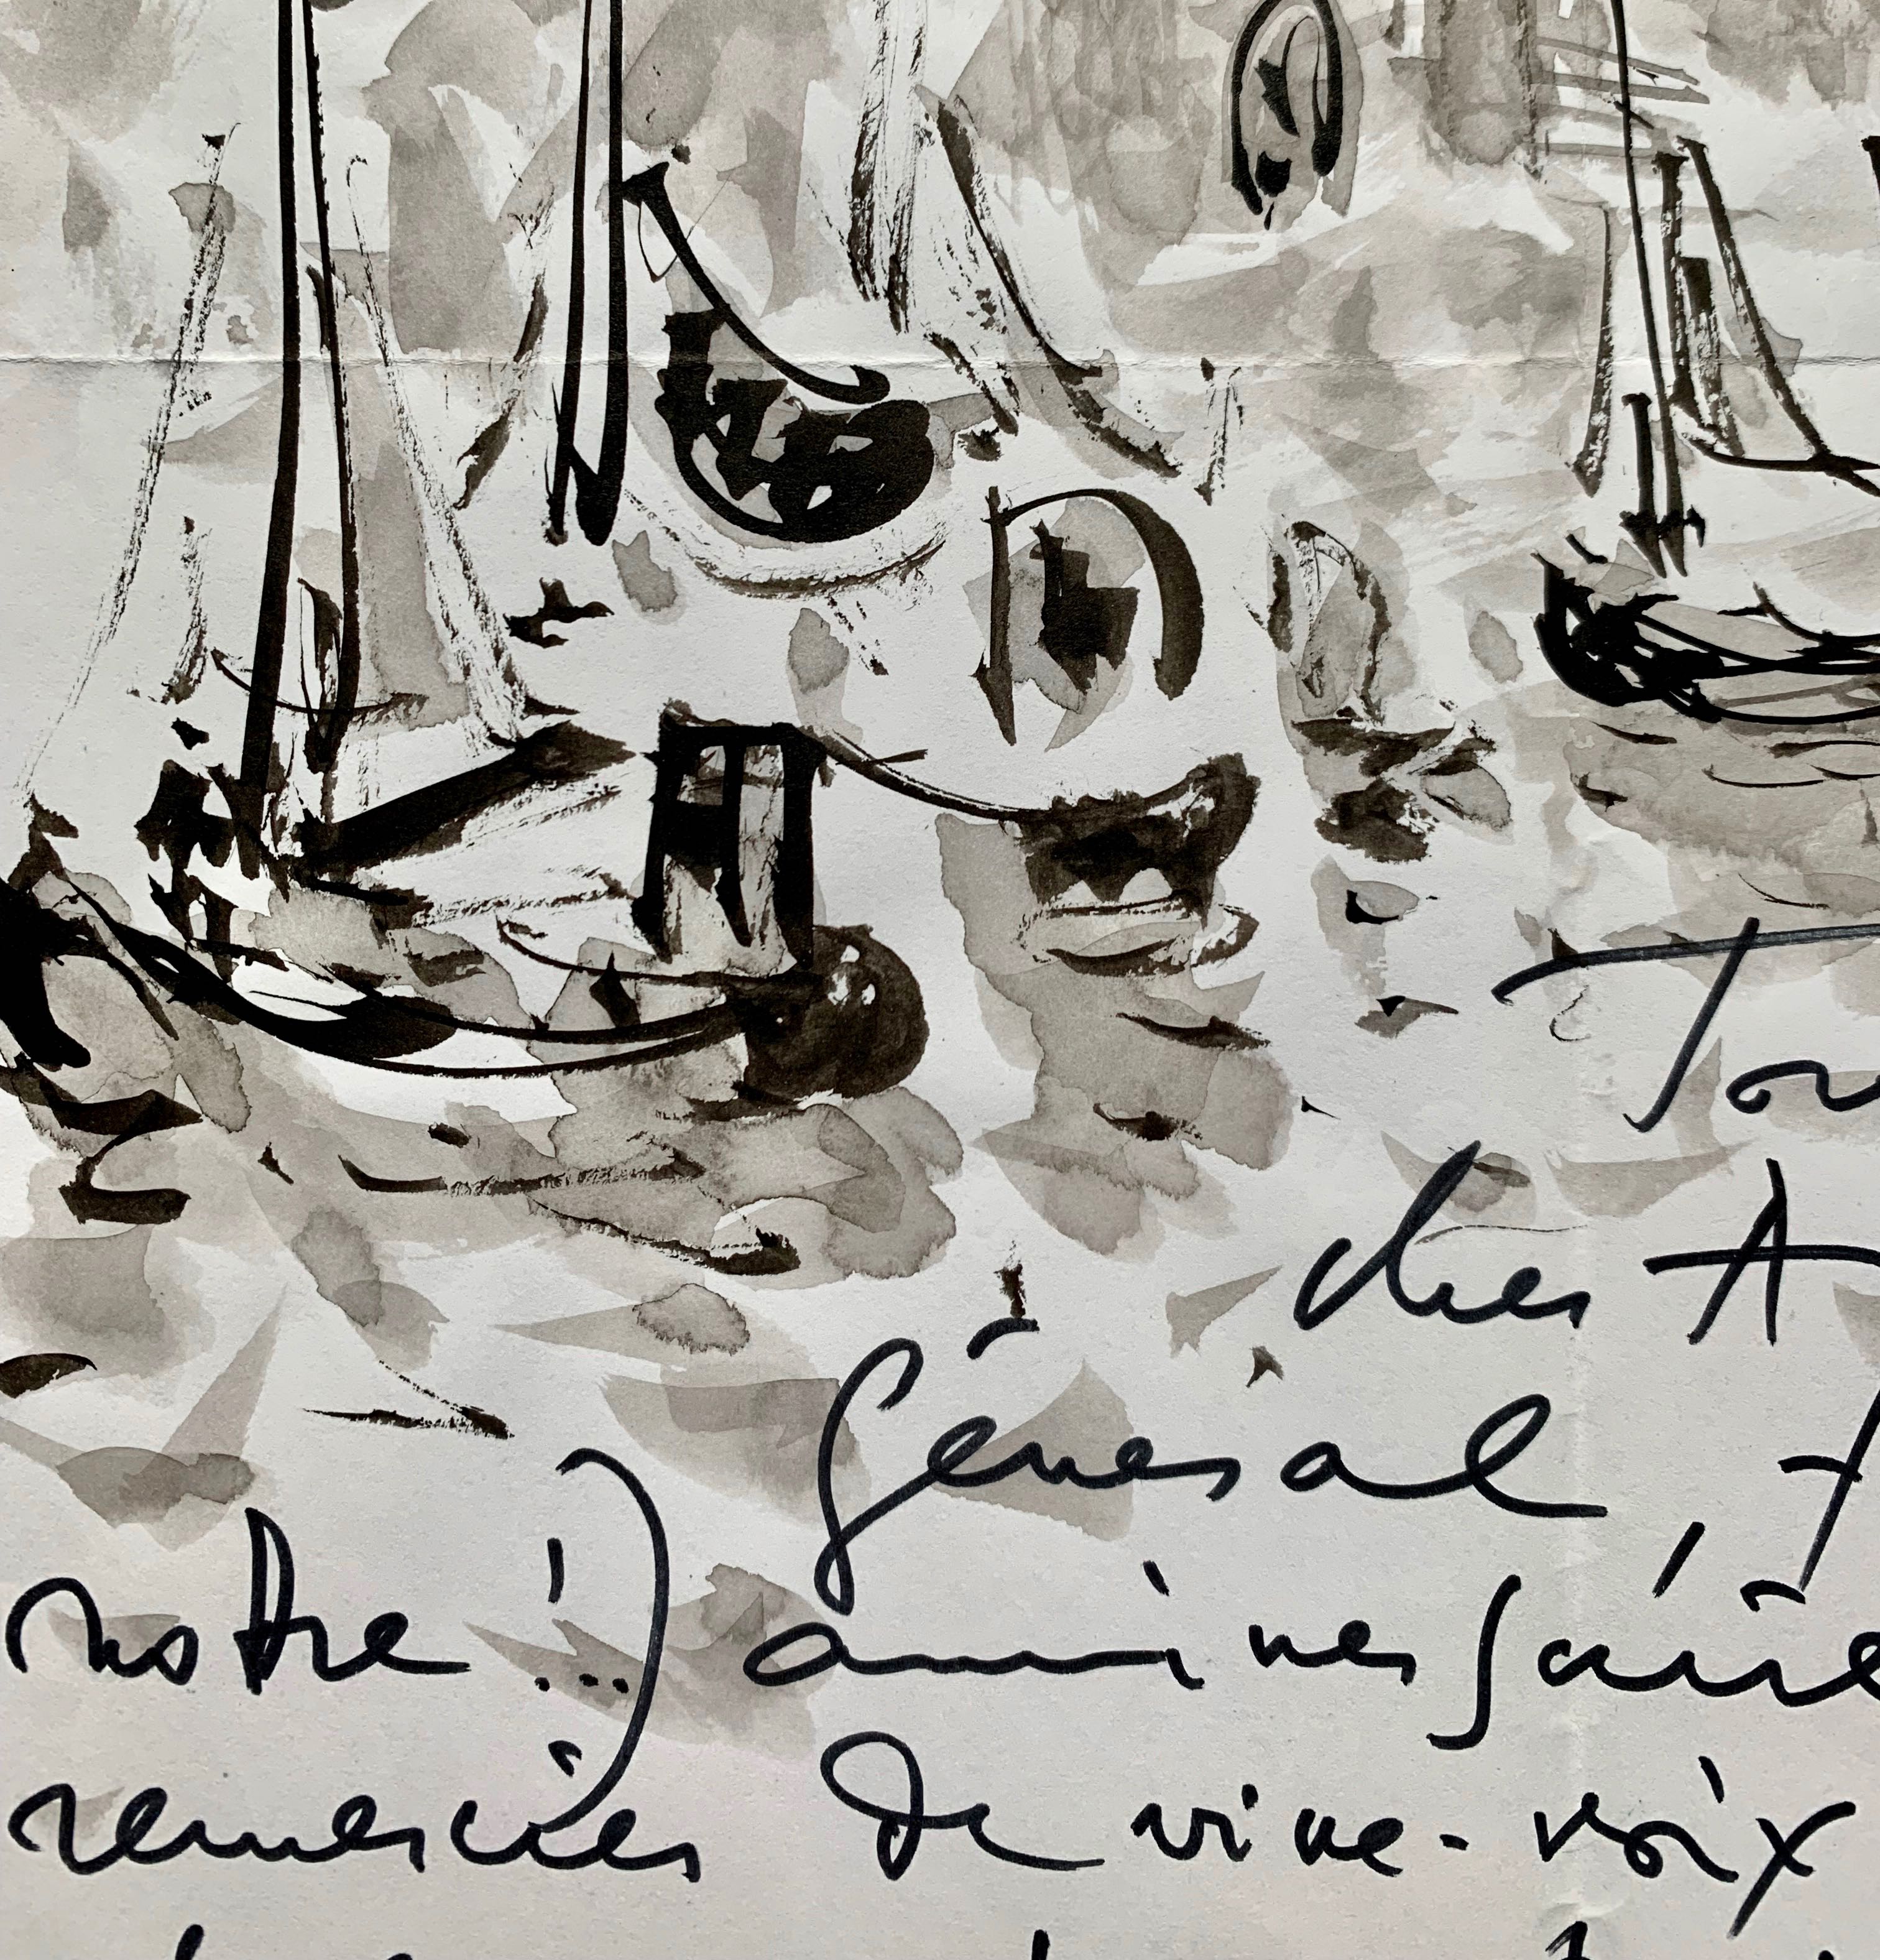 Tou
cher A
Général,
notre !) anniversaire
remercier de vive-voix